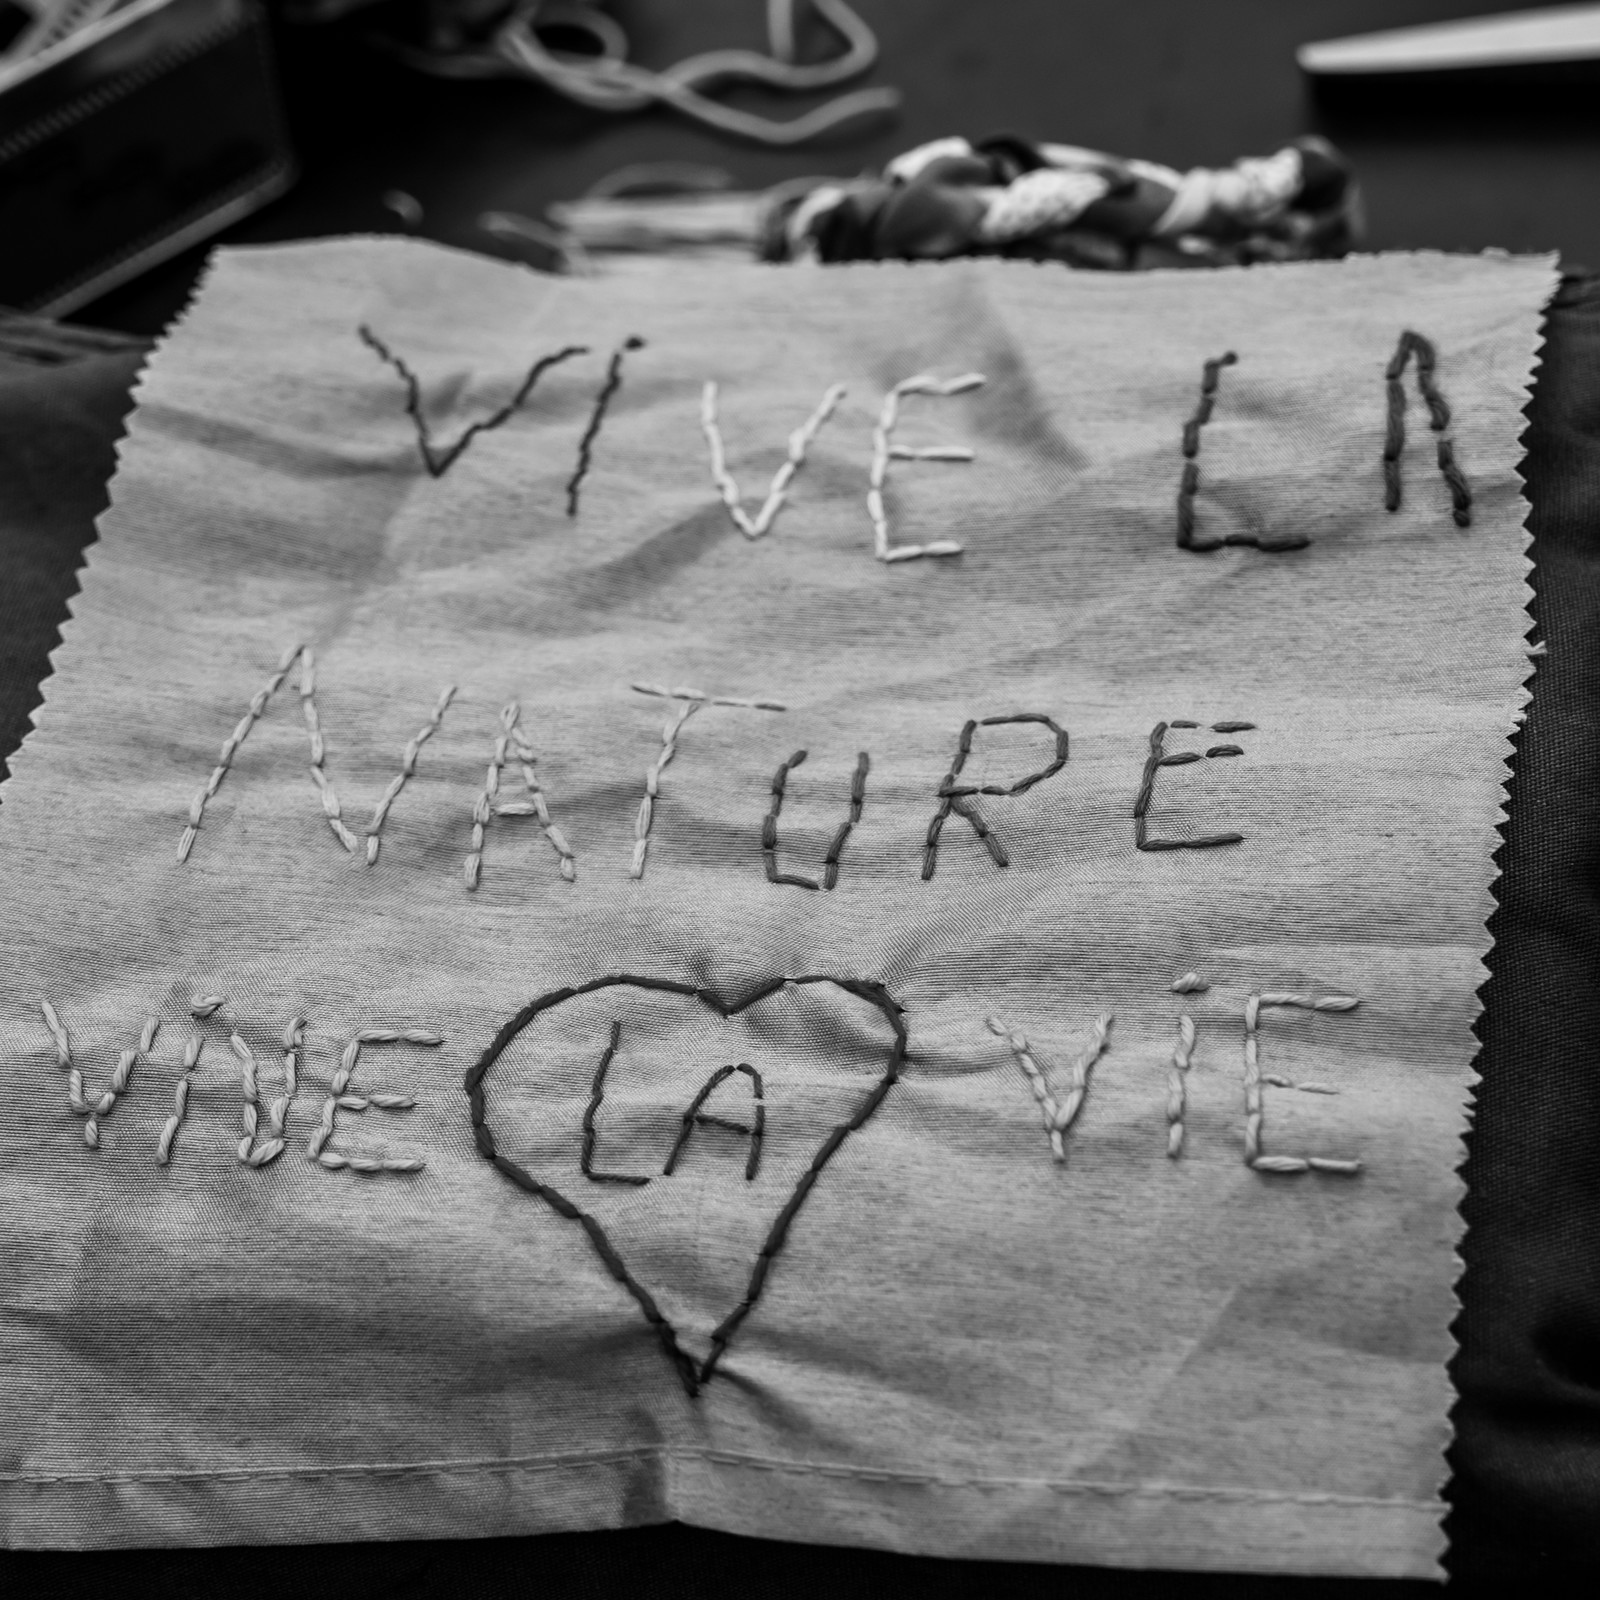 ViVE LA
NATURE
ViVE LA ViE